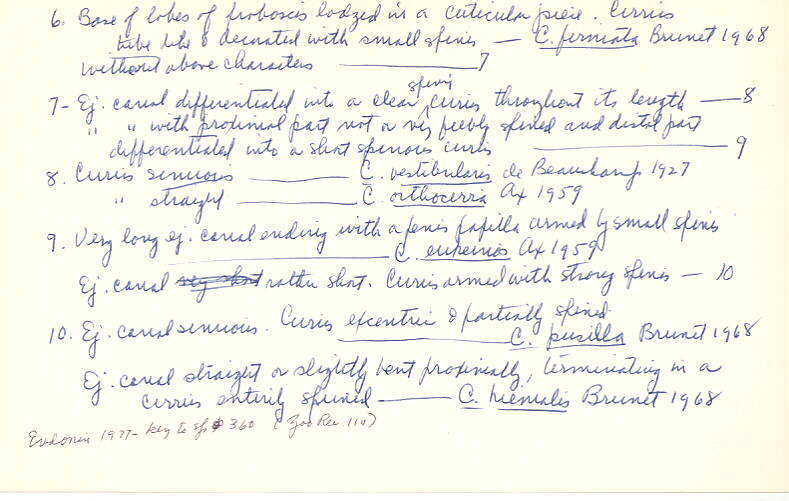 6. Base of lobes of proboscis lodged in a cuticular piece. Cirrus
tube like & decorated with small spines — C. fermata Brunet 1968
without above characters ——— 7
7- Ej. canal differentiated into a clear, spiny cirrus throughout its length — 8
" " with proximal part not or very feebly spined and distal part
differentiated into a short spinous cirrus ——— 9
8. Cirrus sinuous ——— C. vestibularis de Beauchamp 1927
" straight ——— C. orthocirra Ax 1959
9. Very long ej. canal ending with a penis papilla armed by small spines
——— C. euxeinos Ax 1959
Ej. canal very short rather short. Cirrus armed with strong spines — 10
10. Ej. canal sinuous. Cirrus excentric & partially spined
——— C. pusilla Brunet 1968
Ej. canal straight or slightly bent proximally, terminating in a
cirrus entirely spined ——— C. hiemalis Brunet 1968
Evdonin 1977- key to sp 360 (Zoo Rec. 114)